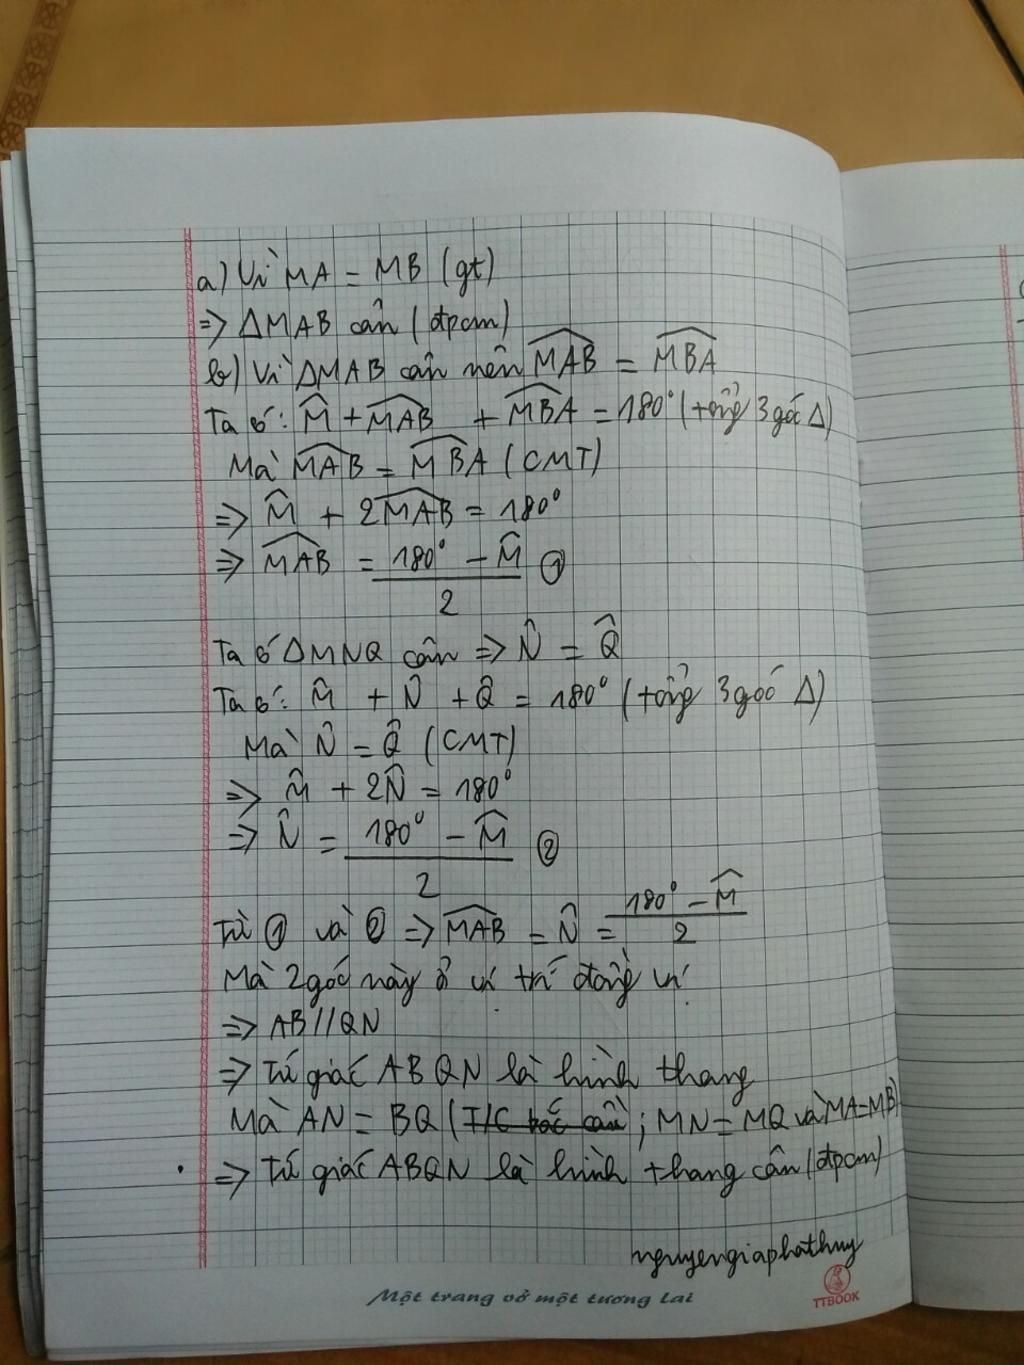 a) Vì MA = MB (gt)
=> ΔMAB cân (đpcm)
b) Vì ΔMAB cân nên \widehat{MAB} = \widehat{MBA}
Ta có: \widehat{M} + \widehat{MAB} + \widehat{MBA} = 180° (tổng 3 góc Δ)
Mà \widehat{MAB} = \widehat{MBA} (CMT)
=> \widehat{M} + 2\widehat{MAB} = 180°
=> \widehat{MAB} = \frac{180° - \widehat{M}}{2} ①
Ta có ΔMNQ cân => \widehat{N} = \widehat{Q}
Ta có: \widehat{M} + \widehat{N} + \widehat{Q} = 180° (tổng 3 góc Δ)
Mà \widehat{N} = \widehat{Q} (CMT)
=> \widehat{M} + 2\widehat{N} = 180°
=> \widehat{N} = \frac{180° - \widehat{M}}{2} ②
Từ ① và ② => \widehat{MAB} = \widehat{N} = \frac{180° - \widehat{M}}{2}
Mà 2 góc này ở vị trí đồng vị
=> AB // QN
=> Tứ giác ABQN là hình thang
Mà AN = BQ (; MN = MQ và MA = MB)
=> Tứ giác ABQN là hình thang cân (đpcm)
nguyengiaphathuy
Một trang vở một tương lai
TTBOOK